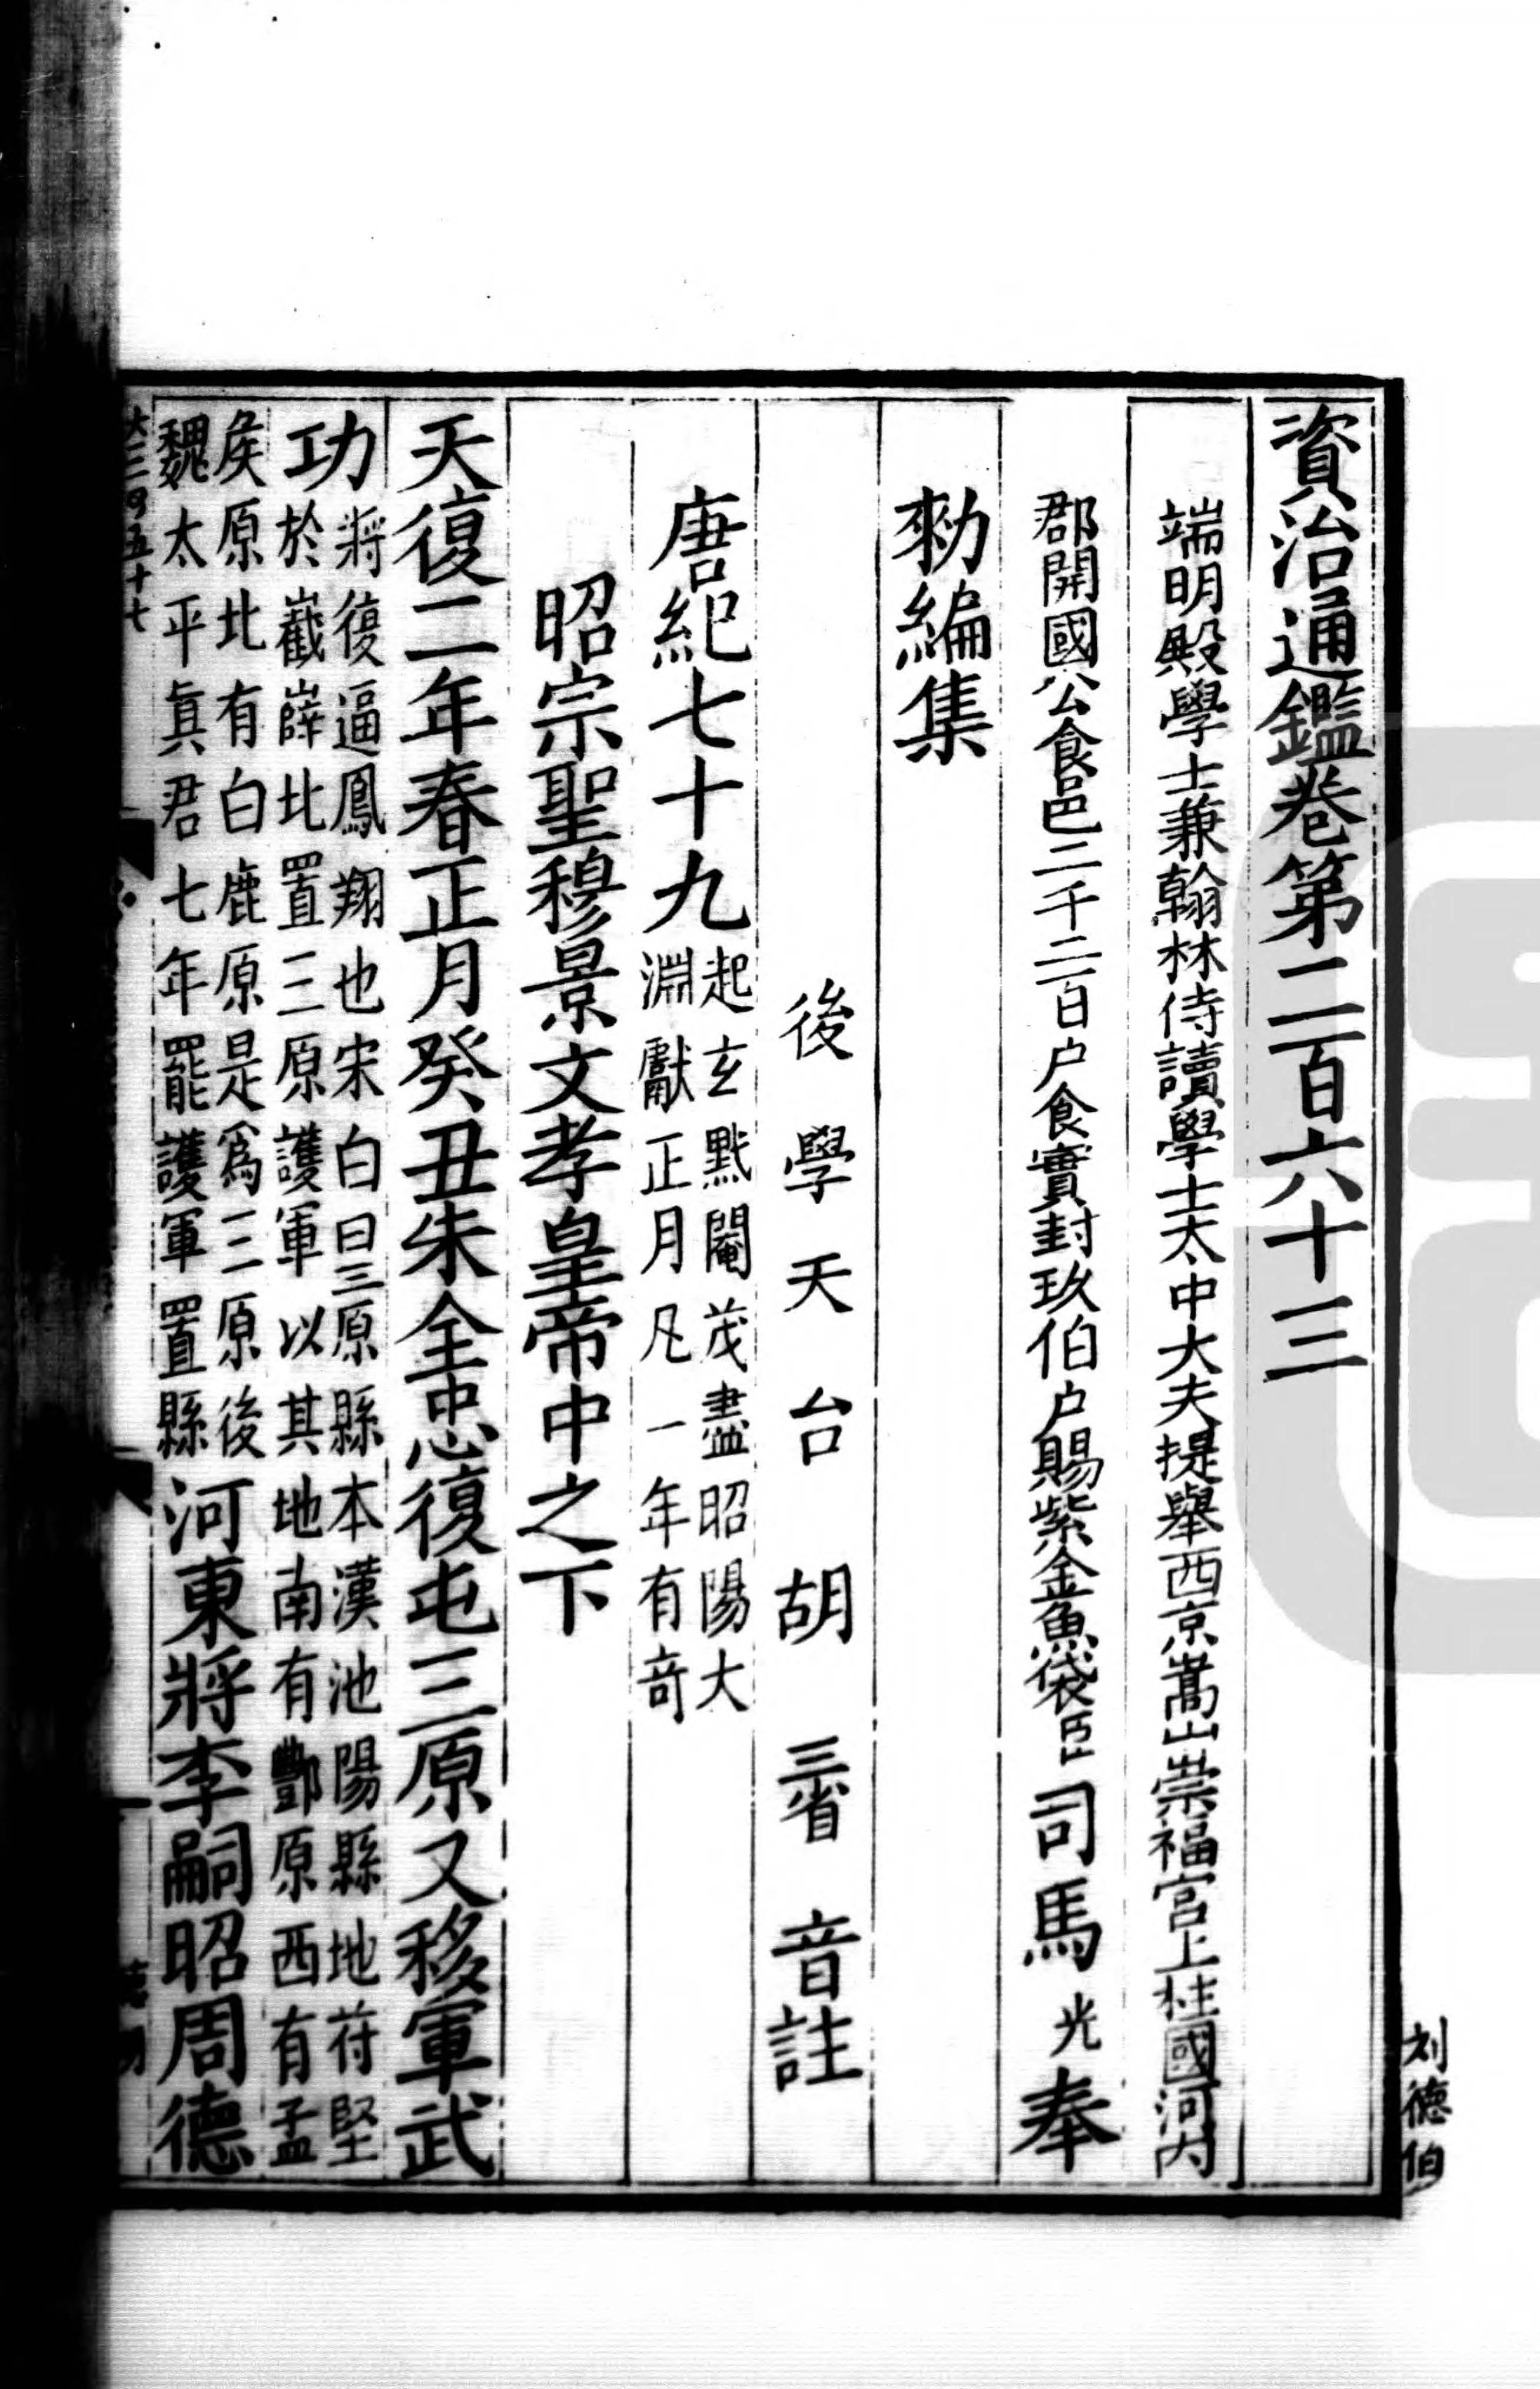 資治通鑑卷第二百六十三
端明殿學士兼翰林侍讀學士太中大夫提舉西京嵩山崇福宮上柱國河內
郡開國公食邑二千二百户食實封玖伯户賜紫金魚袋臣司馬光奉
勑編集
後學天台胡三省音註
唐紀七十九起玄黓閹茂盡昭陽大
淵獻正月凡一年有奇
昭宗聖穆景文孝皇帝中之下
天復二年春正月癸丑朱全忠復屯三原又移軍武
功將復逼鳳翔也宋白曰三原縣本漢池陽縣地苻堅
於嶻嶭北置三原護軍以其地南有酆原西有孟
矦原北有白鹿原是爲三原後
魏太平眞君七年罷護軍置縣河東將李嗣昭周德
大二四五十七
刘德伯